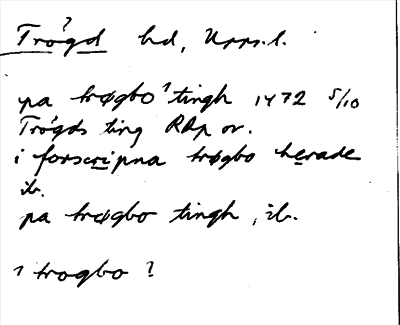 Trögd hd, Upps.l.
pa trøgbo tingh 1472 5/10
Trögds ting RAp or.
i forscripna trøgbo herade
ib.
pa trøgbo tingh, ib.
1 trogbo ?